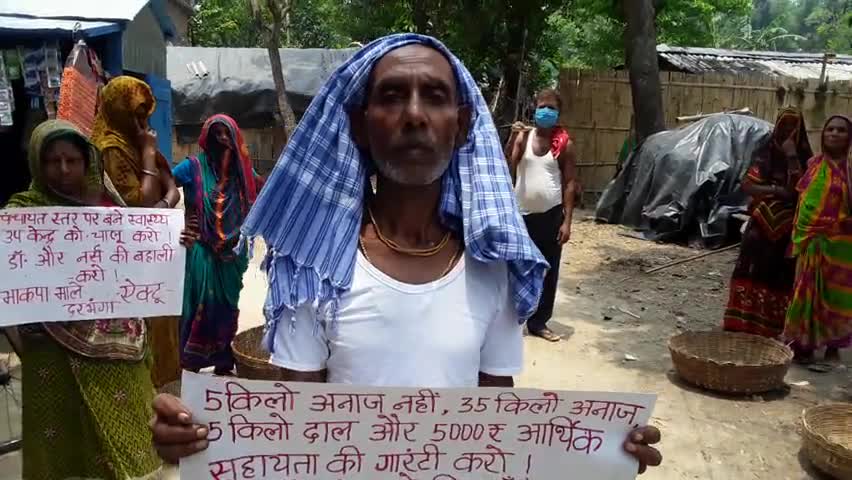 पंचायत स्तर पर बने स्वास्थ्य
उप केन्द्र को चालू करो
डॉ॰ और नर्स की बहाली
करो !
भाकपा माले ऐक्टू -
दरभंगा
5 किलो अनाज नहीं, 35 किलो अनाज,
5 किलो दाल और 5000 ₹ आर्थिक
सहायता की गारंटी करो !